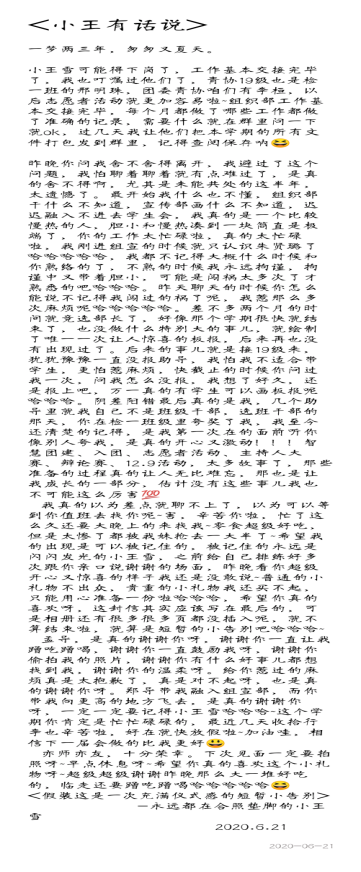 <小王有话说>
一梦两三年，匆匆又夏天。
小王雪可能得下岗了，工作基本交接完毕
了，我也叮嘱过他们了，青协19级也是检
一班的邢明珠，团委青协咱们有李桓，以
后志愿者活动就更加容易啦~组织部工作基
本交接完毕，每个月都做了哪些工作都做
了准确的记录，需要什么就在群里问一下
就ok，过几天我让他们把本学期的所有文
件打包发到群里，记得查阅保存呐😄
昨晚你问我舍不舍得离开，我避过了这个
问题，我怕聊着聊着就有点难过了，是真
的舍不得啊，尤其是本能共处的这半年，
太遗憾了。最开始我什么也不懂，组织部
干什么不知道，宣传部画什么不知道，迟
迟融入不进去学生会，我真的是一个比较
慢热的人，胆小和慢热凑到一块简直是极
端了，你的工作太忙碌啦，真的太忙碌
啦，我刚进组宣的时候就只认识朱贤璐了
哈哈哈哈哈，我都不记得大概什么时候和
你熟络的了，不熟的时候我永远拘谨，拘
谨中又带着胆小，可能是闯祸太多次了才
熟悉的吧哈哈哈，昨天聊天的时候你怎么
能说不记得我闯过的祸了呢，我惹那么多
次麻烦呢哈哈哈哈哈，差不多两个月的时
间就竞选部长了，好像那个学期很快就结
束了，也没做什么特别大的事儿，就绘制
了唯一一次让人惊喜的板报，后来再也没
有出现过了。后来的事儿就是接19级来，
犹犹豫豫一直没报助导，我怕我不适合带
学生，更怕惹麻烦，快截止的时候你问过
我一次，问我怎么没报，我想了好久，还
是报上吧，万一真的有学生可以画板报呢
哈哈哈，阴差阳错最后真的是我，几个助
导里就我自己不是班级干部，选班干部的
那天，你在检一班级里夸奖了我，我至今
还清楚的记得，是我第一次在的面前听你
像别人夸我，是真的开心又激动！！！智
慧团建、入团、志愿者活动、主持人大
赛、辩论赛、12.9活动，太多故事了，那些
准备的过程真的让人无比难忘，那也是让
我成长的一部分，估计没有这些事儿我也
不可能这么厉害💯
我真的以为差点就聊不上了，以为可以等
到你值班去找你呢~害，辛苦你啦，忙了这
么久还要大晚上的来找我~零食超级好吃，
但是太惨了都被我妹抢去一大半了~希望我
的出现是可以被记住的，被记住的永远是
闪闪发光的小王雪，之前给自己排练好多
次跟你亲口说谢谢的场面，昨晚看你超级
开心又惊喜的样子我还是没敢说~普通的小
礼物不出众，贵重的小礼物我还买不起，
只能用心准备一份啦哈哈哈，希望你真的
喜欢呀。这封信其实应该写在最后的，可
是相册还有很多很多页都没插入呢，就不
算结束啦，就算是短暂的小告别吧哈哈哈~
孟导，是真的谢谢你呀，谢谢你一直让我
蹭吃蹭喝，谢谢你一直鼓励我呀，谢谢你
偷拍我的照片，谢谢你有什么好事儿都想
找到我，谢谢你的温柔呀。给你惹过的麻
烦真是太抱歉了，真是对不起呀，也是真
的谢谢你呀，郑导带我融入组宣部，而你
带我向更高的地方飞去。是真的谢谢你
呀，一定一定要记得小王雪哈哈哈~这个学
期你肯定是忙忙碌碌的，最近几天收拾行
李也辛苦啦，好在就快放假啦~加油哇，相
信下一届会做的比我更好😃
亦师亦友，十分荣幸。下次见面一定要拍
照呀~早点休息呀~希望你真的喜欢这个小礼
物呀~超级超级谢谢昨晚那么大一堆好吃
的，临走还要蹭吃蹭喝哈哈哈哈哈😄
<假装这是一次充满仪式感的短暂小告别>
—永远都在合照垫脚的小王
雪
2020.6.21
2020-06-21